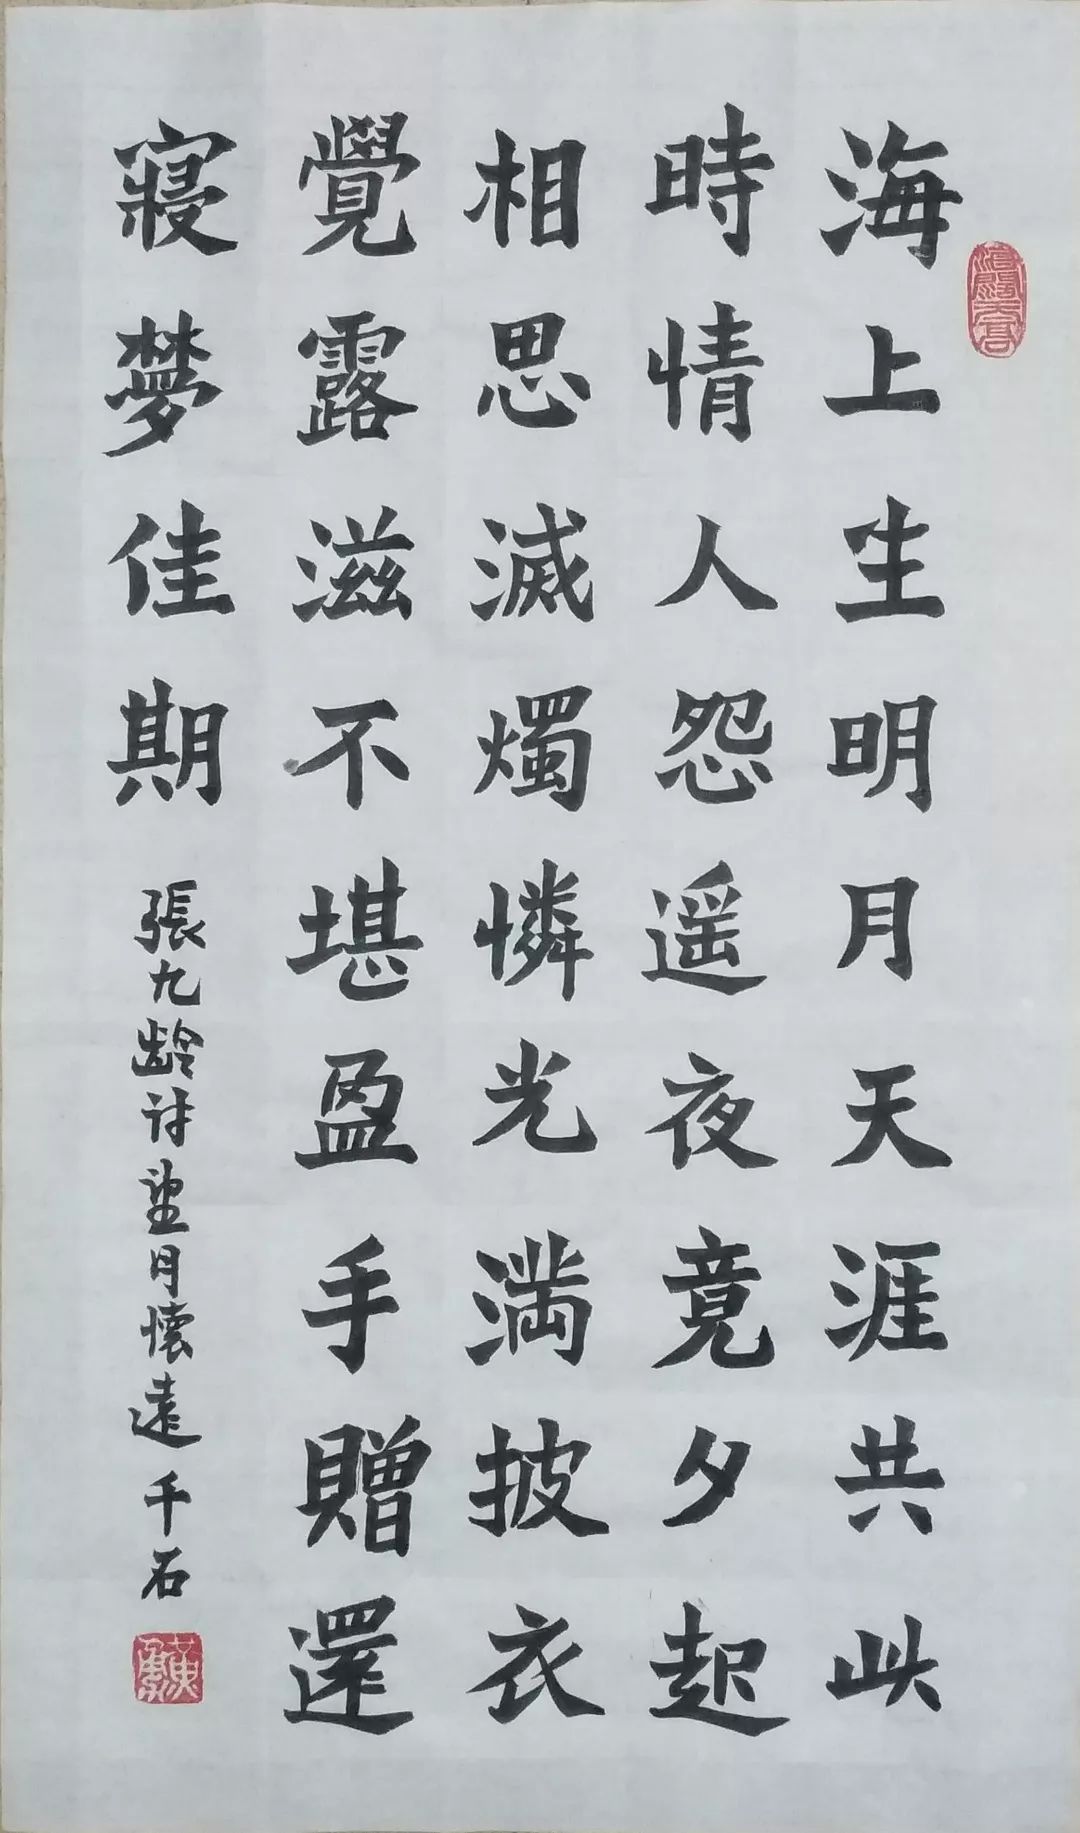 海上生明月天涯共此
時情人怨遥夜竟夕起
相思滅燭憐光満披衣
覺露滋不堪盈手贈還
寢夢佳期
張九龄诗望月懷遠 千石